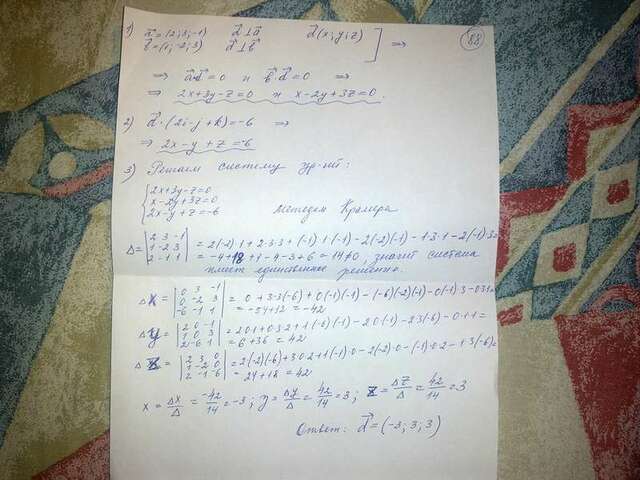 1) a⃗ = (2; 3; -1) d⃗ ⊥ a⃗ d⃗ (x; y; z)
b⃗ = (1; -2; 3) d⃗ ⊥ b⃗ ] ⇒
88
⇒ a⃗ d⃗ = 0 и b⃗ d⃗ = 0 ⇒
⇒ 2x+3y-z=0 и x-2y+3z=0.
2) d⃗ · (2i-j+k) = -6 ⇒
⇒ 2x-y+z=-6
3) Решаем систему ур-ний:
{ 2x+3y-z=0
x-2y+3z=0
2x-y+z=-6 методом Крамера
Δ = |2 3 -1; 1 -2 3; 2 -1 1| = 2(-2)·1+2·3·3+(-1)·1(-1)-2(-2)(-1)-1·3·1-2(-1)3=
= -4+18+1-4-3+6=14≠0, значит система
имеет единственное решение.
Δx = |0 3 -1; 0 -2 3; -6 -1 1| = 0+3·3(-6)+0(-1)(-1)-(-6)(-2)(-1)-0(-1)3-0·3·1=
= -54+12=-42
Δy = |2 0 -1; 1 0 3; 2 -6 1| = 2·0·1+0·3·2+1(-6)(-1)-2·0(-1)-2·3(-6)-0·1·1=
= 6+36=42
Δz = |2 3 0; 1 -2 0; 2 -1 -6| = 2(-2)(-6)+3·0·2+1(-1)·0-2(-2)·0-(-1)·0·2-1·3(-6)=
= 24+18=42
x = Δx/Δ = -42/14 = -3; y = Δy/Δ = 42/14 = 3; z = Δz/Δ = 42/14 = 3
Ответ: d⃗ = (-3; 3; 3)